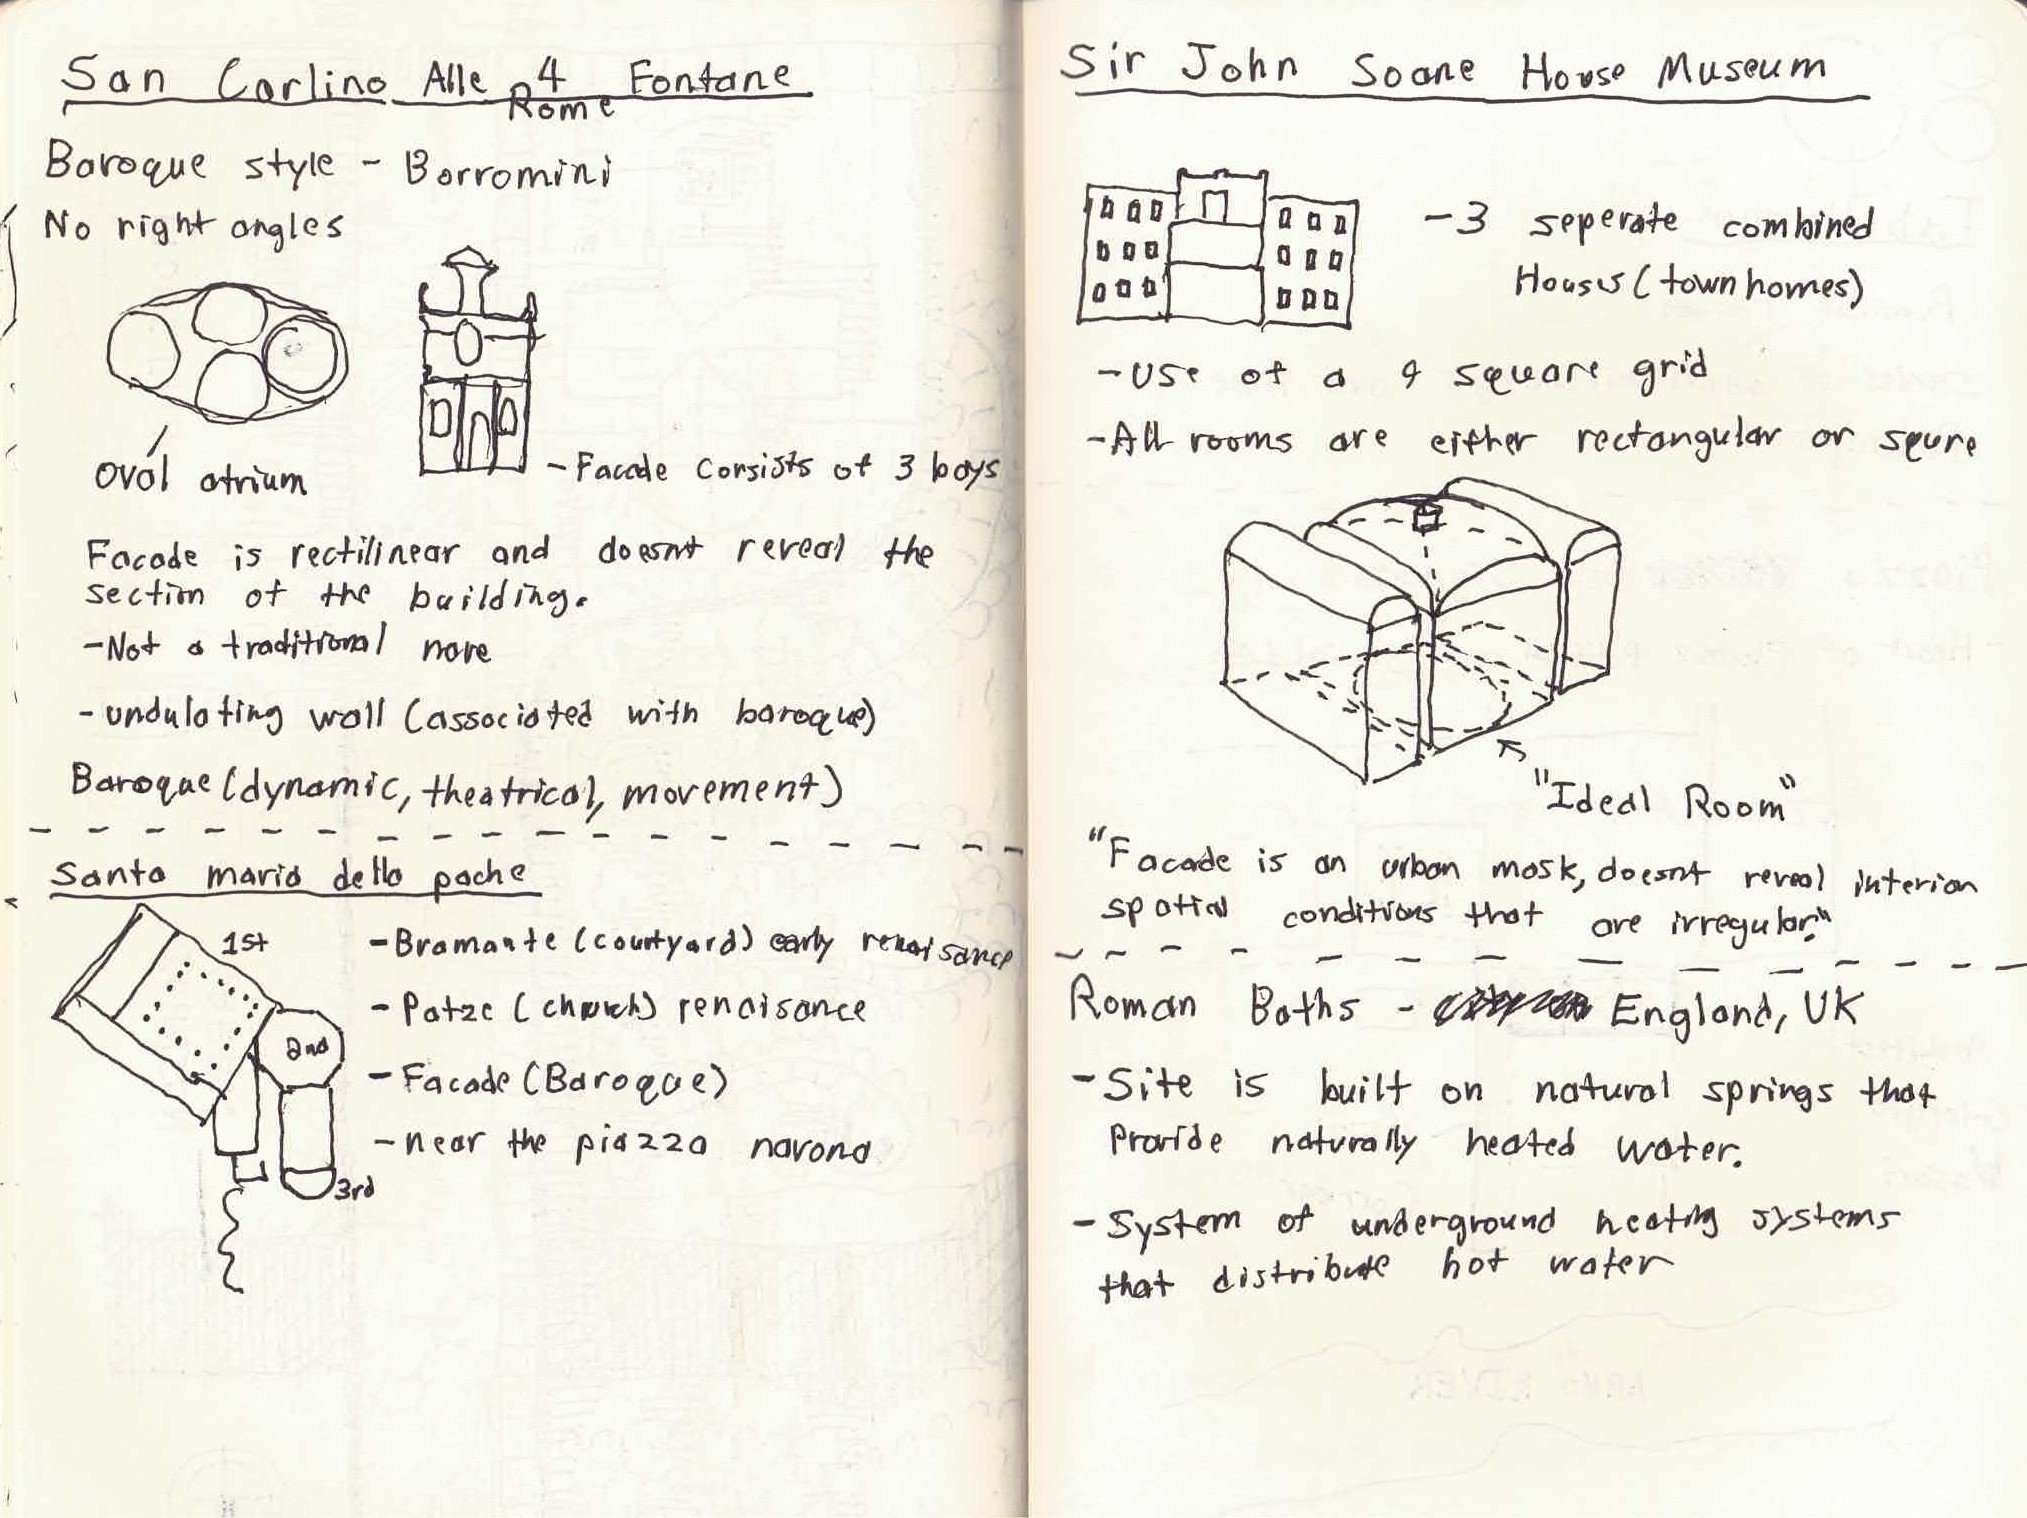 San Carlino Alle 4 Fontane
Rome
Baroque style - Borromini
No right angles
oval atrium
- Facade consists of 3 bays
Facade is rectilinear and doesnt reveal the
section of the building.
- Not a traditional nave
- undulating wall (associated with baroque)
Baroque (dynamic, theatrical, movement)
Santa maria della pache
1st
2nd
3rd
- Bramante (courtyard) early renaisance
- Patze (church) renaisance
- Facade (Baroque)
- near the piazza navona
Sir John Soane House Museum
- 3 seperate combined
Houses (town homes)
- Use of a 9 square grid
- All rooms are either rectangular or squre
"Ideal Room"
"Facade is an urban mask, doesnt reveal interior
spatial conditions that are irregular."
Roman Baths - England, UK
- Site is built on natural springs that
Provide naturally heated water.
- System of underground heating systems
that distribute hot water